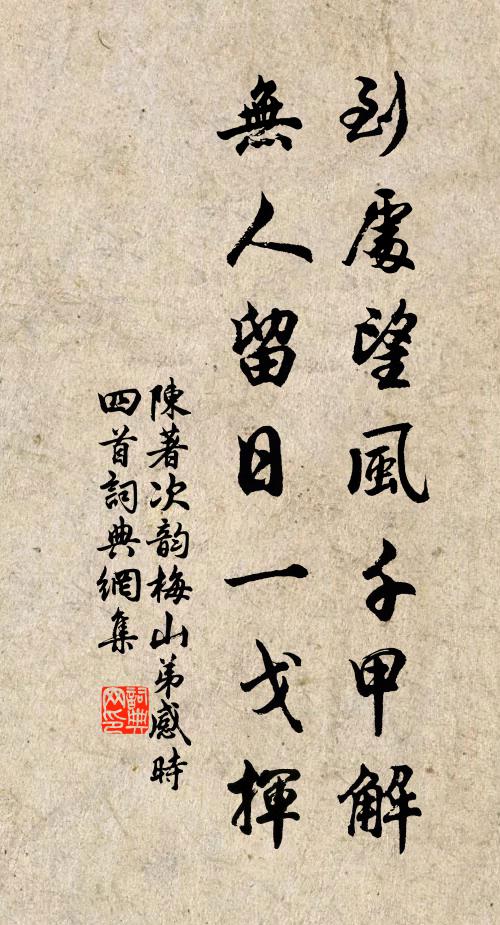 到處望風千甲解
無人留日一戈揮
陳著次韵梅山弟感時
四首詞典網集
詞典
网印